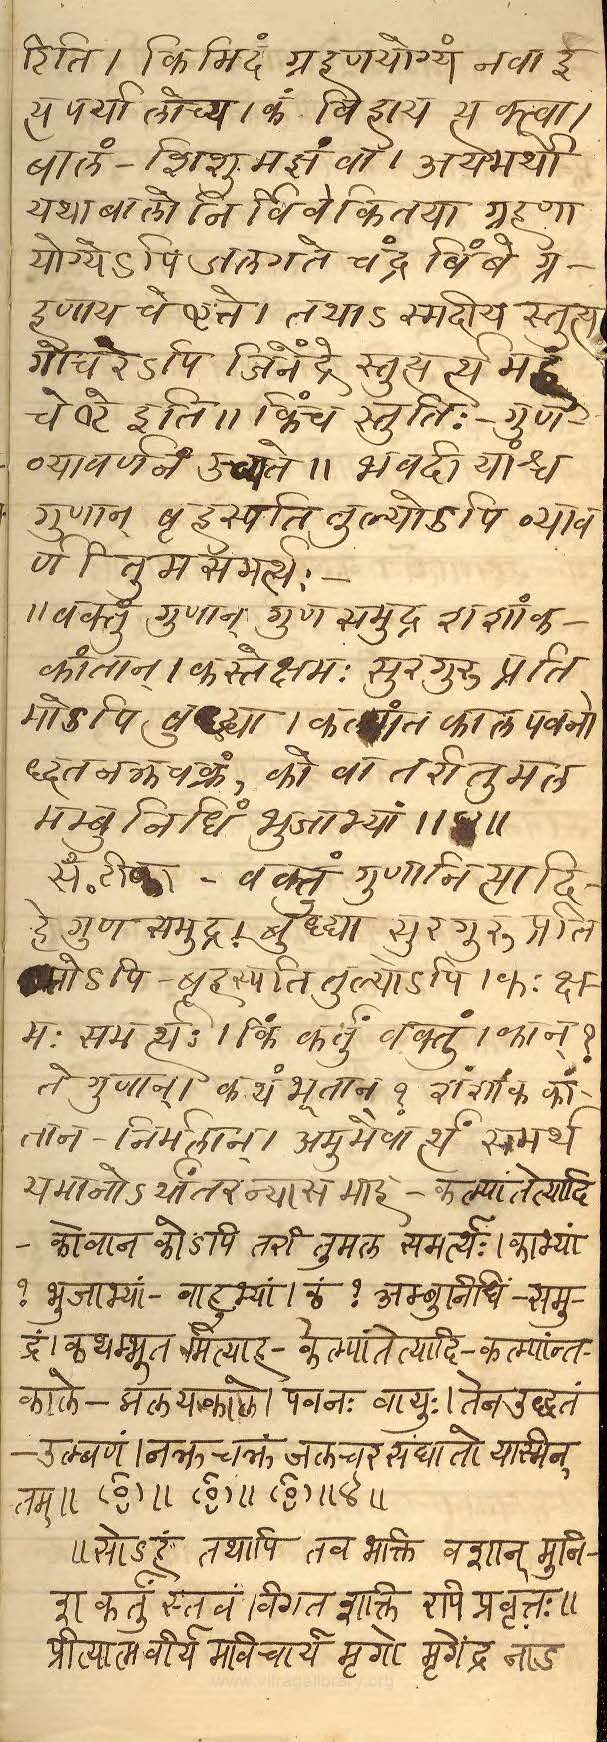 रिति। किमिदं ग्रहणयोग्यं नवा ई
त्य पर्यालोच्य। कं विहाय त्यक्त्वा।
बालं - शिशुमज्ञं वा। अयमर्थो
यथा बालो निर्विवेकितया ग्रहणा
योग्येऽपि जलगते चंद्र बिंबे ग्र-
हणाय चेष्टते। तथाऽस्मदीय स्तुत्य
गोचरेऽपि जिनेंद्रे स्तुत्यर्त्थमहं
चेष्टे इति॥ किंच स्तुतिः - गुण-
व्यावर्णनं उच्यते॥ भवदीयांश्च
गुणान् बृहस्पति तुल्योऽपि व्याव
र्णीतुमसमर्त्थः -
॥वक्तुं गुणान् गुण समुद्र शशांक-
कांतान्। कस्तेक्षमः सुरगुरु प्रति
मोऽपि बुद्ध्या। कल्पांत काल पवनो
ध्द्धत नक्रचक्रं, को वा तरीतुमल
मम्बुनिधिं भुजाभ्यां॥४॥
सं. टीका - वक्तुं गुणानित्यादि-
हे गुण समुद्र! बुध्द्या सुरगुरु प्रति
मोऽपि - बृहस्पति तुल्योऽपि। कः क्ष
मः समर्त्थः। किं कर्तुं वक्तुं। कान्?
ते गुणान्। कथंभूतान्? शंशांक कां-
तान - निर्मलान्। अमुमेवार्त्थं समर्थ
यमानोऽर्थांतरन्यासमाह - कल्पांतेत्यादि
- कोवान कोऽपि तरीतुमल समर्त्थः। काभ्यां
? भुजाभ्यां - बाहुभ्यां। कं? अम्बुनिधिं - समु-
द्रं। कथम्भुतमित्याह - कल्पांतेत्यादि - कल्पान्त-
काले - प्रलयकाले। पवनः वायुः। तेन उध्द्धतं
- उल्बणं। नक्र चक्रं जलचर संघातो यास्मिन्
तम्॥ ॥ ॥ ॥४॥
॥सोऽहं तथापि तव भक्ति वशान् मुनि-
श कर्तुं स्तवं। विगत शक्ति रपि प्रवृत्तः॥
प्रीत्यात्मवीर्य मविचार्य मृगो मृगेंद्र नांड
www.vitragelibrary.org